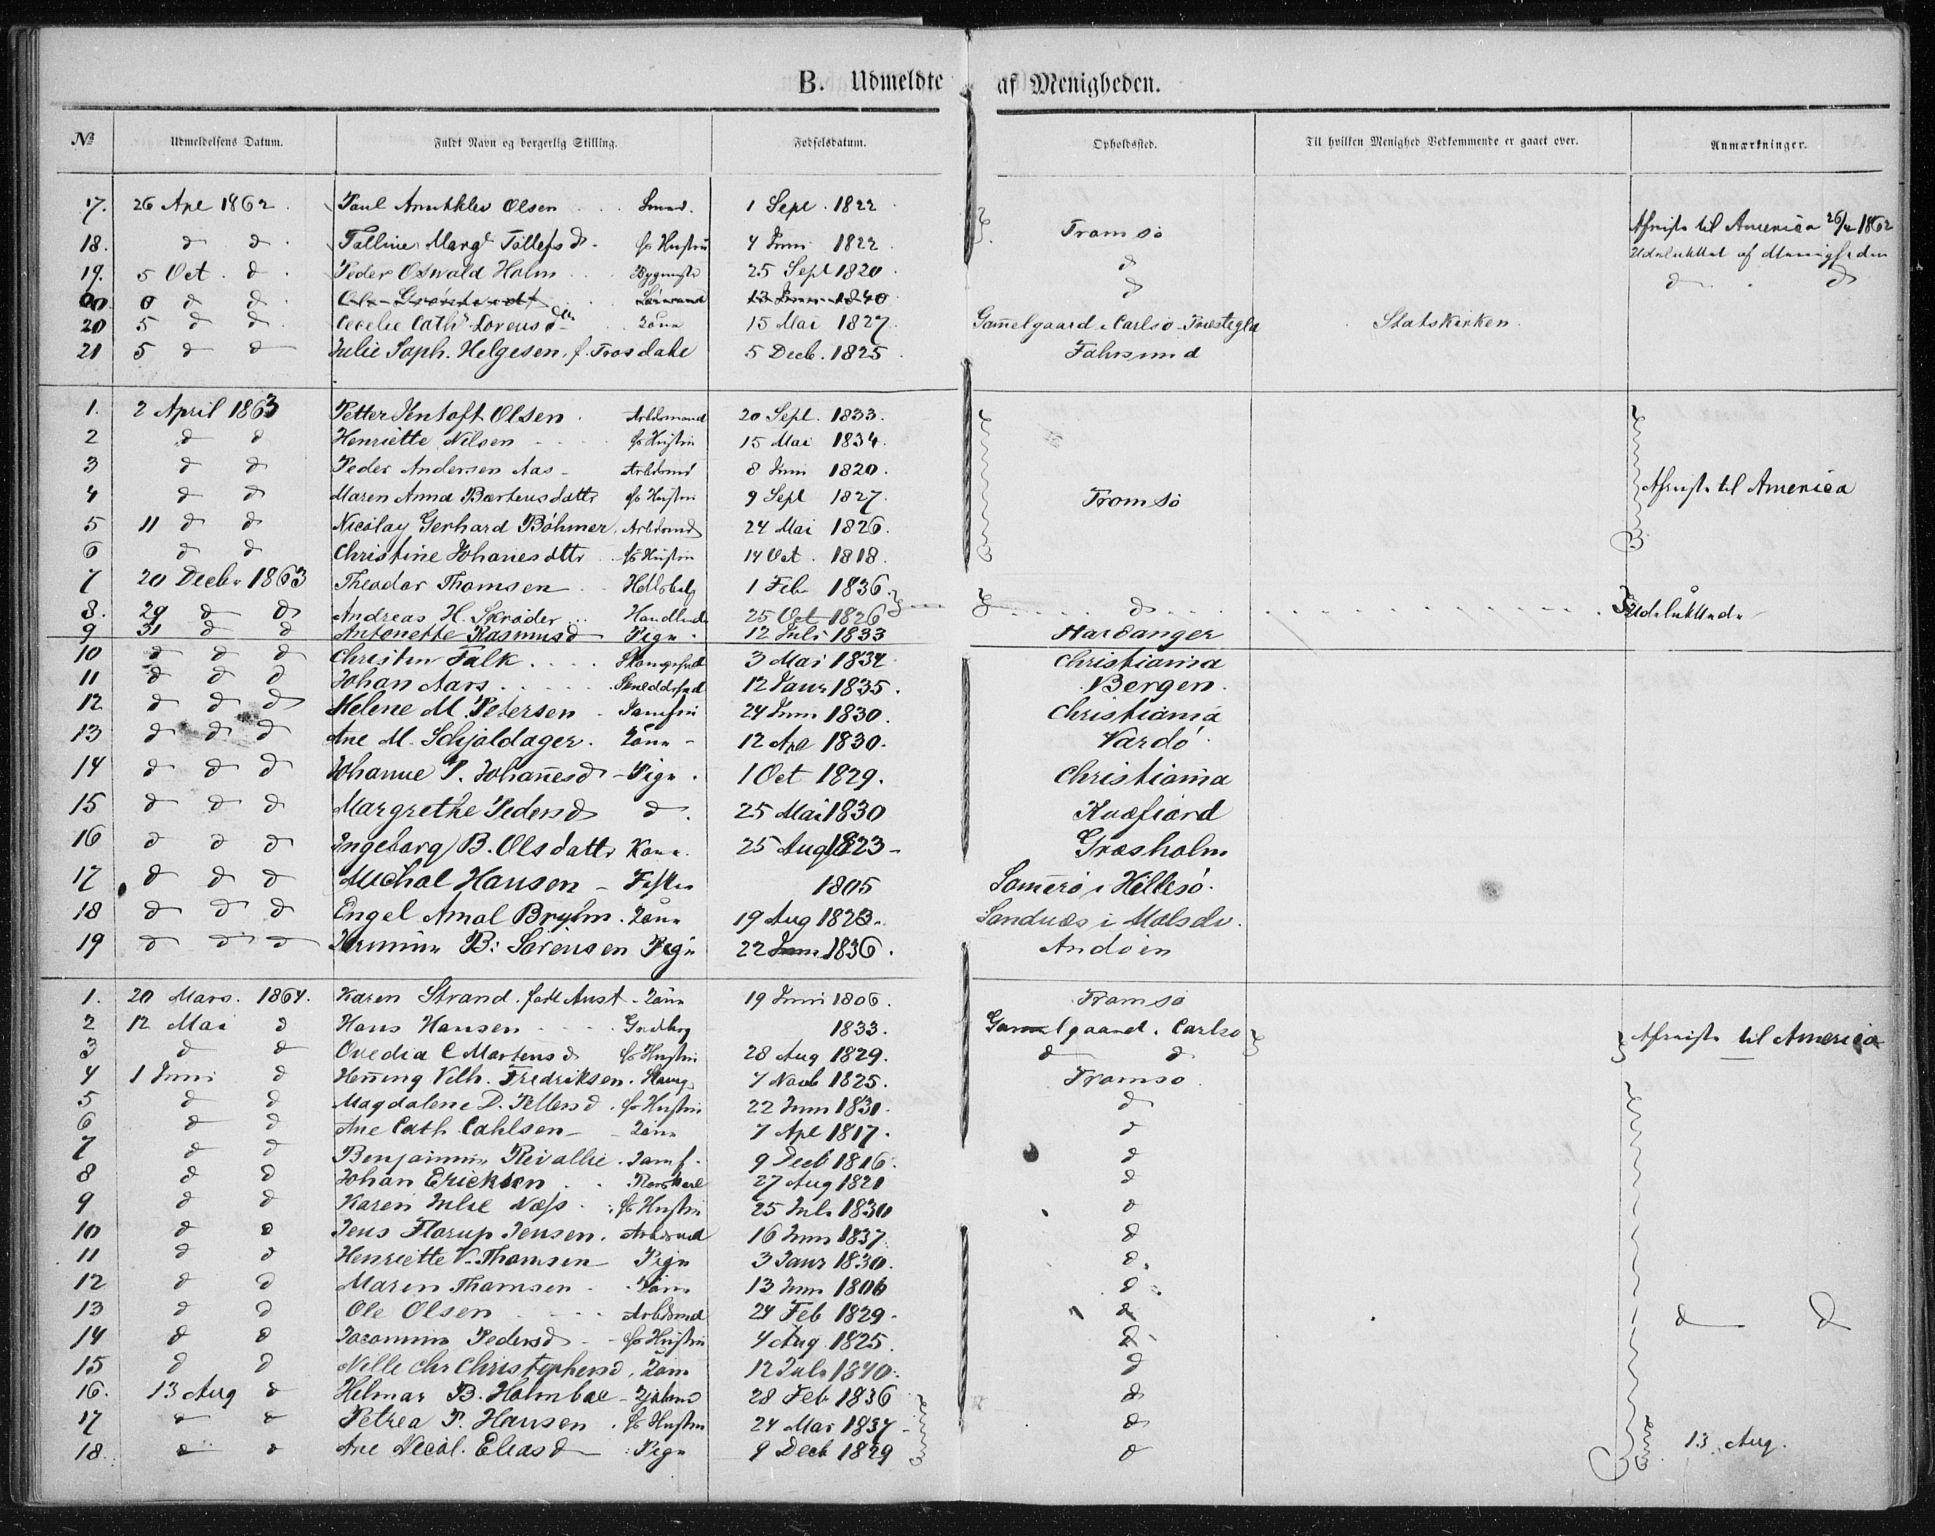 B. Udmeldte af Menigheden.
№ Udmeldelsens Datum. Fuldt Navn og borgerlig Stilling. Fødselsdatum. Opholdssted. Til hvilken Menighed Vedkommende er gaaet over. Anmærkninger.
17. 26 Apl 1862. Paul Olsen Smed. 1 Sept. 1822 Afreist til America 26/4 1862
18. d d. Margt Tollefsd. Hustru 4 Juni 1822 Tromsö Udelukket af Menigheden
19. 5 Oct. d. Peder Oswald Holm Bygmstr 25 Sept 1820 d d d
20. 0 d d. Ole 13 Juni 1840 d
20 5 d d. Cecelie Cathr Lorensd Kone 15 Mai 1827. Gamelgaard i Carlsö Præstegld Statskirken.
21 5 d d Julie Soph. Helgesen, f. Trosdahl 5 Decb. 1825 Fahrsund
1. 2 April 1863 Petter Jentoft Olsen Arbdsmand 20 Sept. 1833.
2 d d Henriette Nilsen Hustru 15 Mai 1834.
3 d d Peder Andersen Aas Arbdsmd 8 Juni 1820.
4 d d Maren Anna Bærtensdattr Hustru 9 Sept 1827. Tromsö Afreist til America
5 11 d d Nicolay Gerhard Böhmer. Arbdsmd 24 Mai 1826.
6 d d Christine Johanesdttr Hustru 14 Oct. 1818.
7 20 Decbr 1863 Theodor Thomsen 1 Feb 1836.
8. 29 d d Andreas H. Skrøder Handlende 25 Oct 1826 d Udelukkede
9 31 d d Antonette Rasmusd Pige 12 Juli 1833 Hardanger
10 d d d Christen Falk 3 Mai 1834 Christiania
11 d d d Johan Aars Sneddersvd 12 Janr 1835. Bergen.
12 d d d Helene M. Petersen Jomfru 24 Juni 1830. Christiania
13 d d d Ane M. Schjoldager. Kone 12 Apl 1830. Vardö
14 d d d Johanne P. Johanesd Pige. 1 Oct 1829. Christiania
15 d d d Margrethe Pedersd d. 25 Mai 1830 Kvæfiord
16 d d d Ingeborg B. Olsdattr Kone. 25 Aug 1823 Græsholm
17 d d d Michal Hansen Fisker 1805 Somerö i Hillesö.
18 d d d Engel Amal Brynm. Kone 19 Aug 1823. Sandnæs i Malselv.
19 d d d B. Sörensen Pige 22 Juni 1836. Andöen
1. 20 Mars. 1864. Karen Strand. födt Aust Kone 19 Juni 1806. Tromsö
2 12 Mai d Hans Hansen Grdbrg 1833. Gamelgaard. Carlsö
3 d d Ovedia C Martensd Hustru 28 Aug 1829. d d Afreist til America
4 1 Juni d Hening Vilh. Fredriksen. 7 Novb 1825. Tromsö
5 d d Magdalene D. Pettersd. Hustru 22 Juni 1831. d
6 d d Ane Cath Cahlsen Kone 7 Apl 1817. d
7 d d Benjamin Rivallie. 9 Decb 1816. d
8 d d Johan Ericksen 27 Aug 1821 d
9 d d Karen Julie Næss Hustru 25 Juli 1830 d
10 d d Jens Florup Jensen. Arbdsmd 16 Juni 1837. d
11 d d Henriette V. Thomsen Pige 3 Janr 1830. d.
12 d d Maren Thomsen Kone 13 Juni 1806 d
13 d d Ole Olsen Arbdsmd 24 Feb 1829. d d d
14 d d Jacomine Pedersd Hustru 4 Aug 1825. d
15 d d Nille Chr Christophersd. Kone 12 Juli 1840. d
16. 13 Aug d Helmar B. Holmboe 28 Feb 1836 d
17 d d Petrea P. Hansen Hustru 24 Mai 1837 d
18 d d Ane Nicol. Eliasd Pige 9 Decb 1829 d 13. Aug.